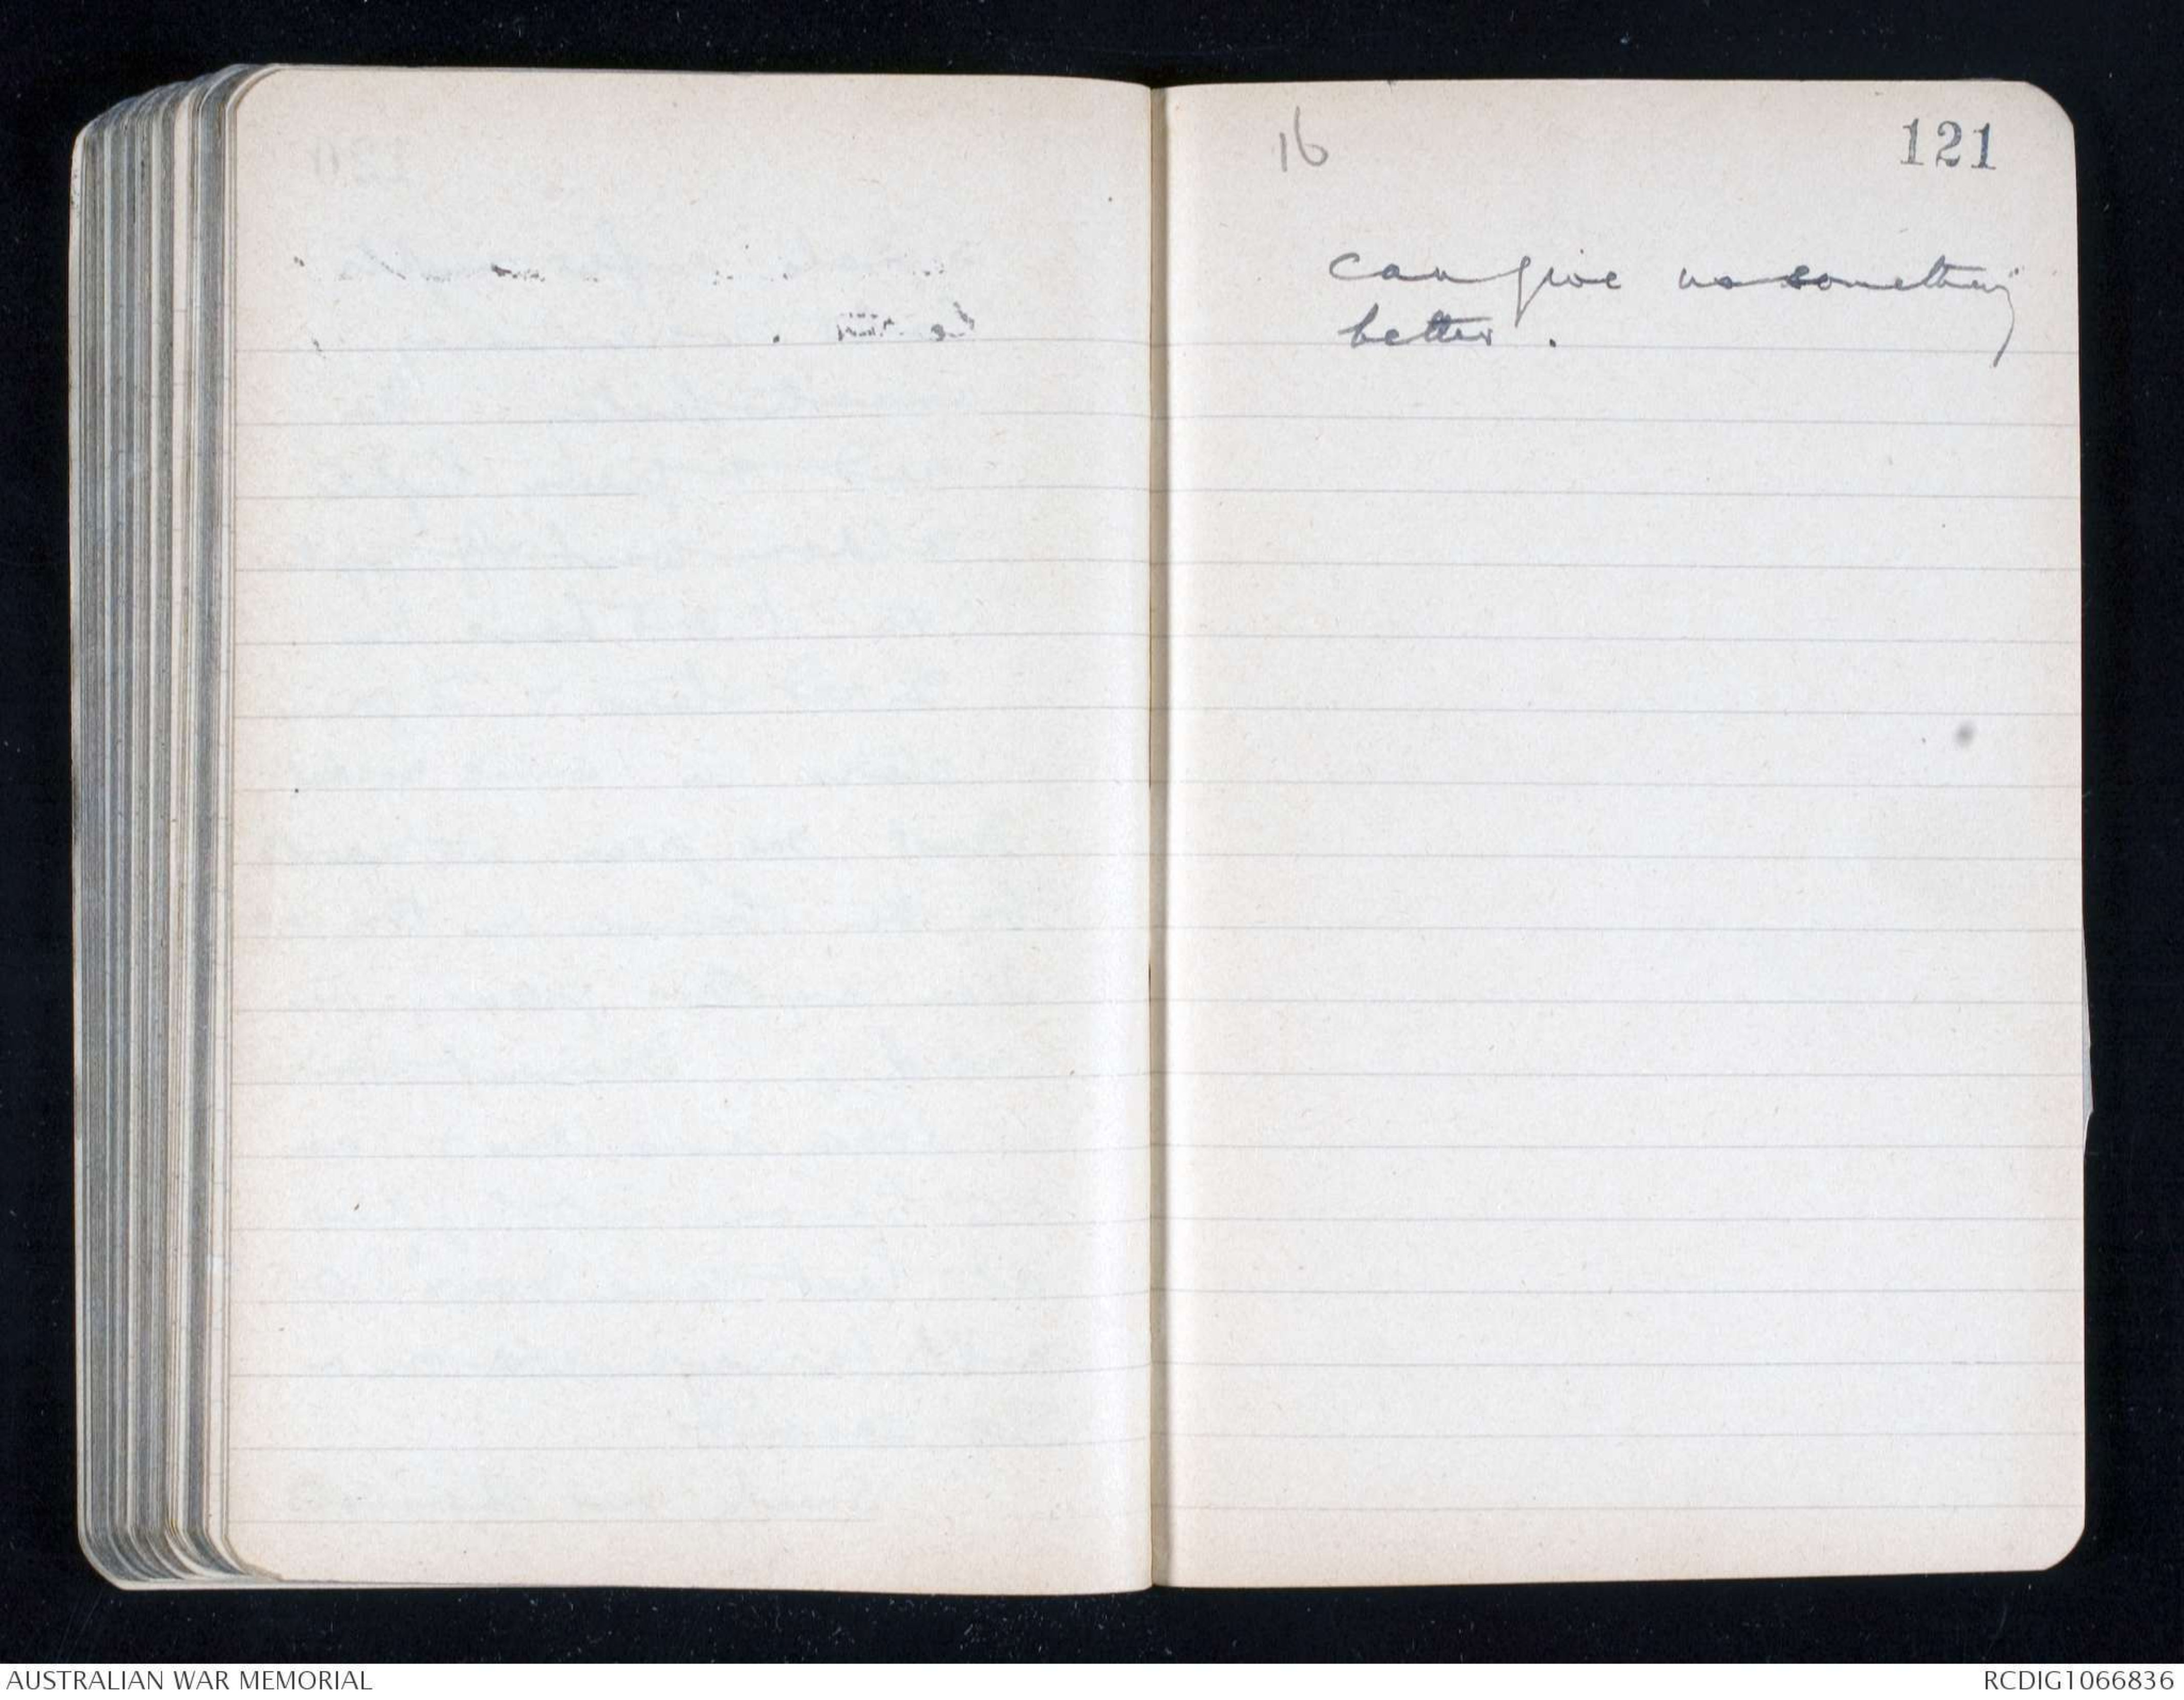 16
121
can give us something
better.
AUSTRALIAN WAR MEMORIAL
RCDIG1066836